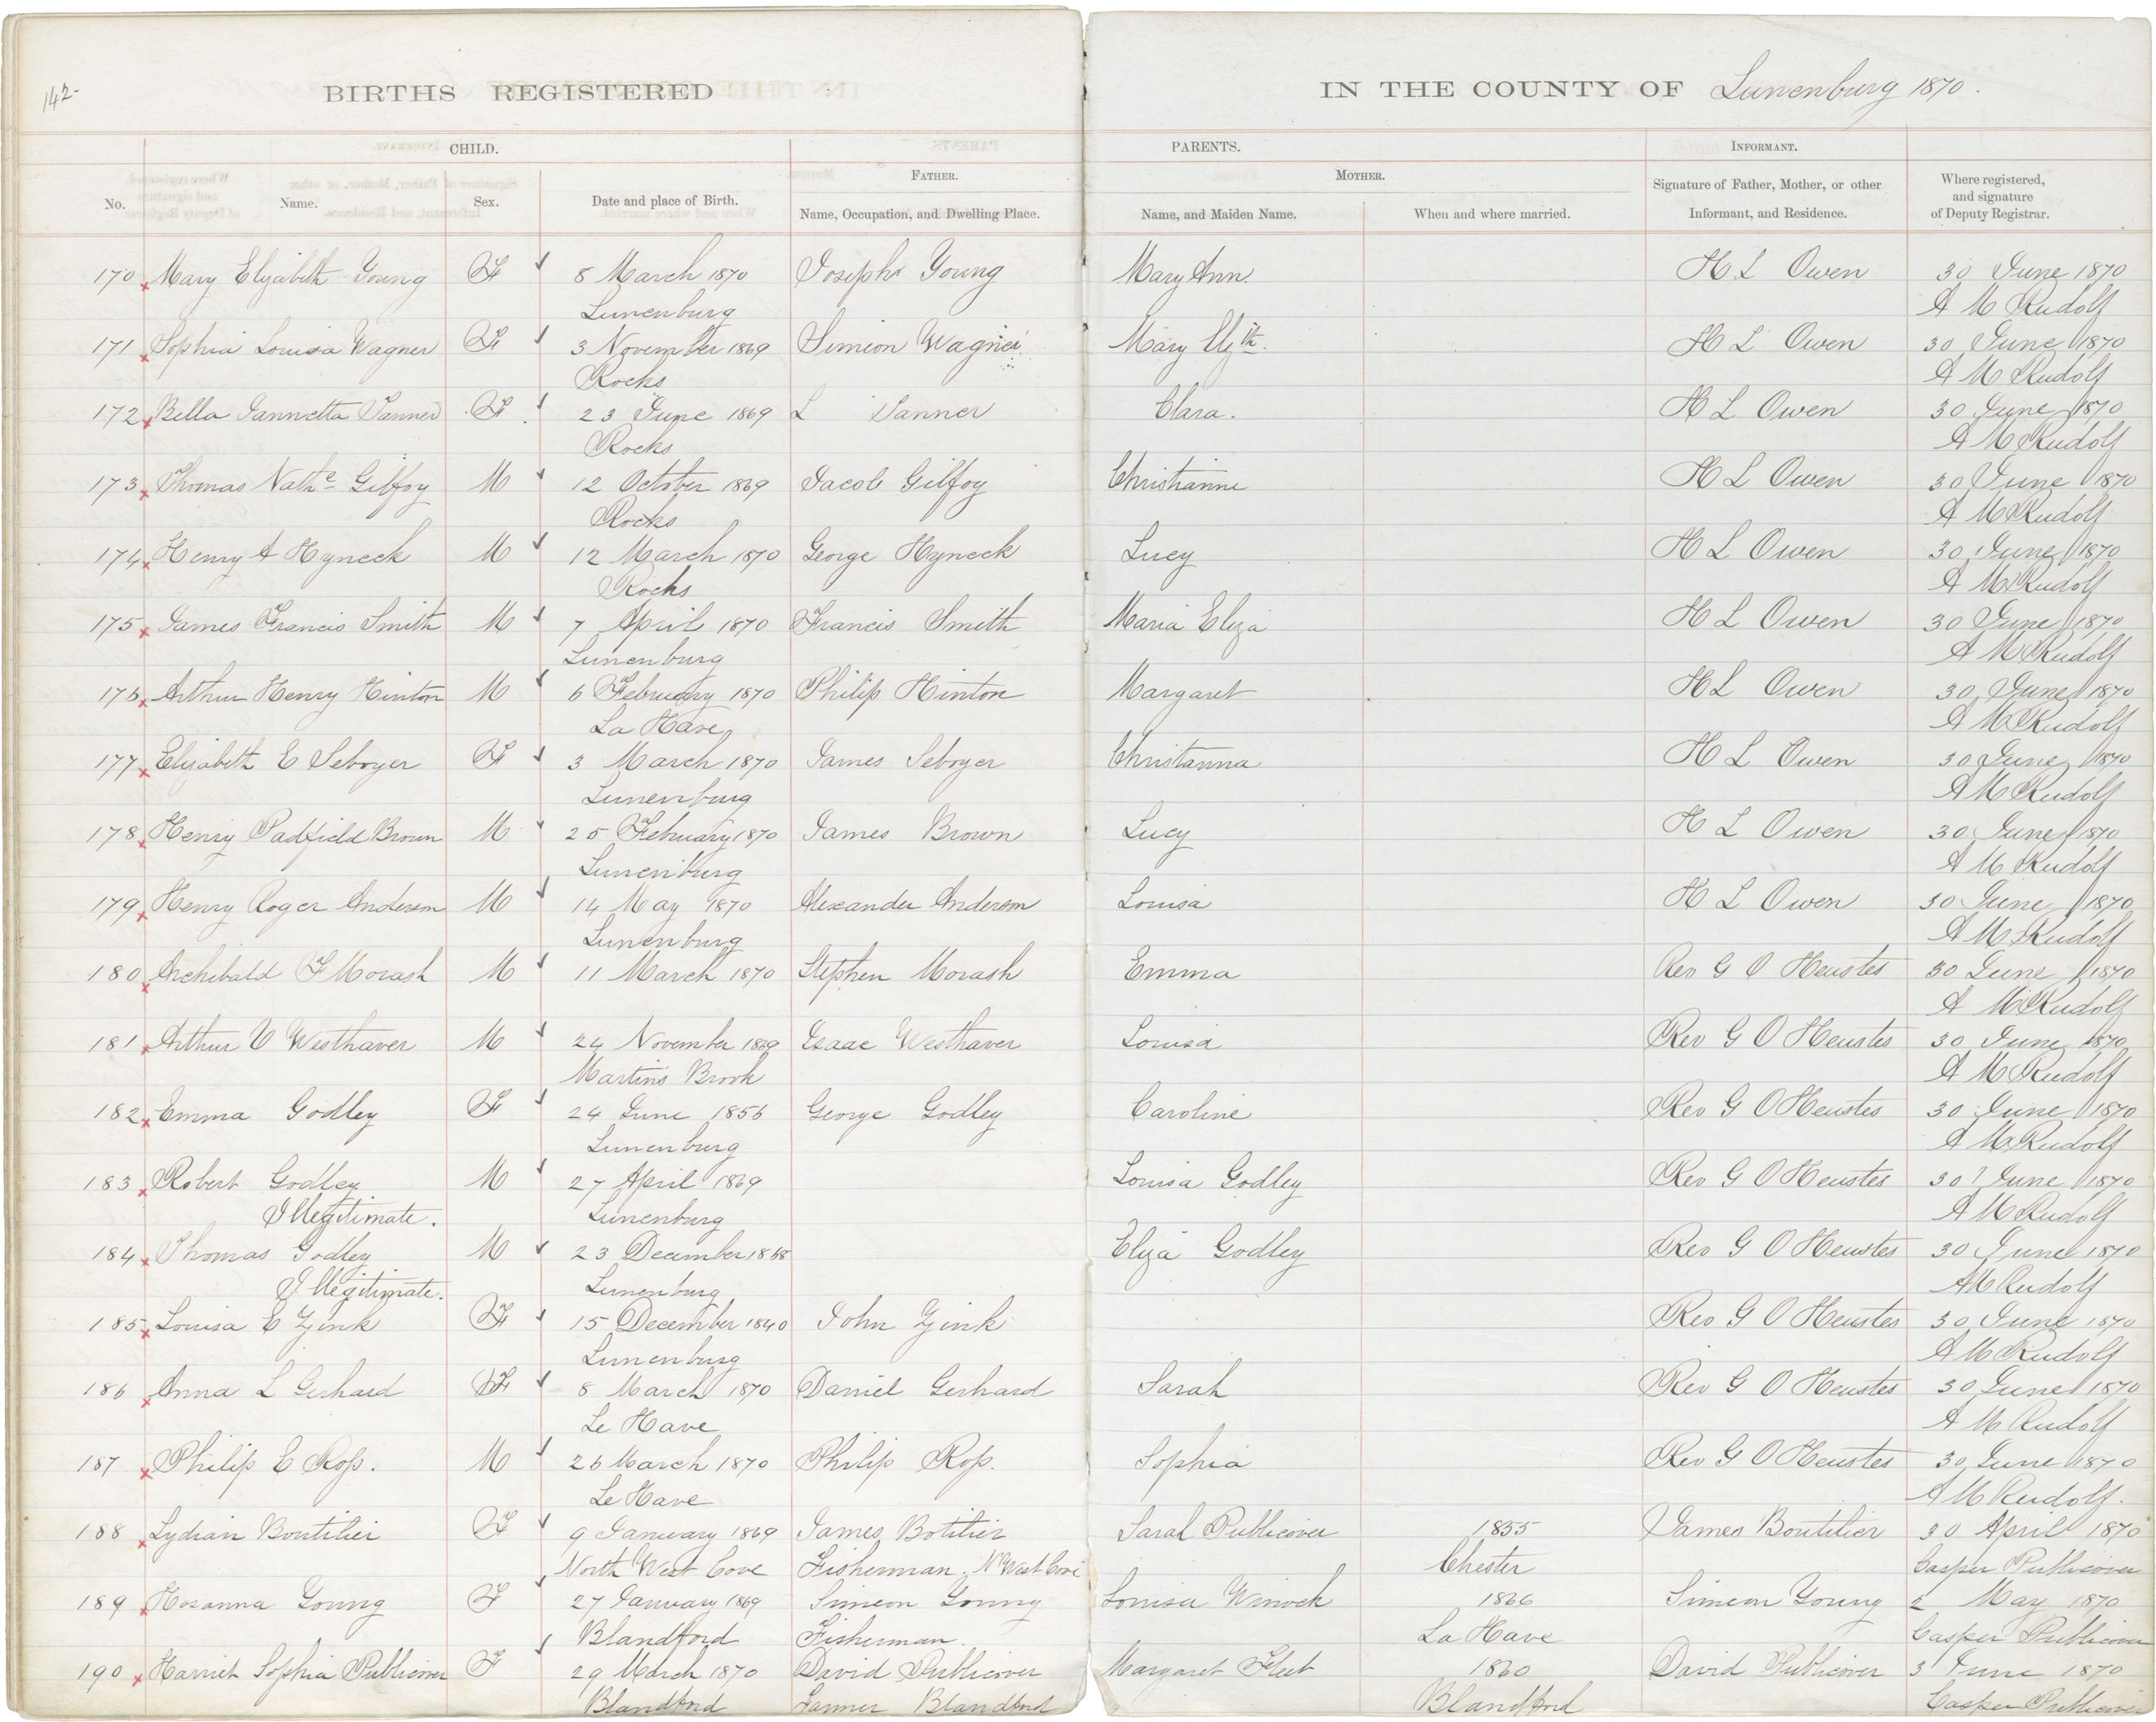 142-
BIRTHS REGISTERED IN THE COUNTY OF Lunenburg 1870.
CHILD. PARENTS. INFORMANT.
FATHER. MOTHER.
No. Name. Sex. Date and place of Birth. Name, Occupation, and Dwelling Place. Name, and Maiden Name. When and where married. Signature of Father, Mother, or other Informant, and Residence. Where registered, and signature of Deputy Registrar.
170 Mary Elizabeth Young F 8 March 1870 Joseph Young Mary Ann. H L Owen 30 June 1870
Lunenburg A M Rudolf
171 Sophia Louisa Wagner F 3 November 1869 Simeon Wagner Mary Elizth. H L Owen 30 June 1870
Rocks A M Rudolf
172 Bella Jannetta Tanner F 23 June 1869 L Tanner Clara. H L Owen 30 June 1870
Rocks A M Rudolf
173 Thomas Nathe Gilfoy M 12 October 1869 Jacob Gilfoy Christianne H L Owen 30 June 1870
Rocks A M Rudolf
174 Henry A Hyneck M 12 March 1870 George Hyneck Lucy H L Owen 30 June 1870
Rocks A M Rudolf
175 James Francis Smith M 7 April 1870 Francis Smith Maria Eliza H L Owen 30 June 1870
Lunenburg A M Rudolf
176 Arthur Henry Hinton M 6 February 1870 Philip Hinton Margaret H L Owen 30 June 1870
La Have A M Rudolf
177 Elizabeth E Seboyer F 3 March 1870 James Seboyer Christanna H L Owen 30 June 1870
Lunenburg A M Rudolf
178 Henry Padfield Brown M 25 February 1870 James Brown Lucy H L Owen 30 June 1870
Lunenburg A M Rudolf
179 Henry Roger Anderson M 14 May 1870 Alexander Anderson Louisa H L Owen 30 June 1870
Lunenburg A M Rudolf
180 Archibald F Morash M 11 March 1870 Stephen Morash Emma Rev G O Heustes 30 June 1870
A M Rudolf
181 Arthur V Westhaver M 24 November 1869 Isaac Westhaver Louisa Rev G O Heustes 30 June 1870
Martins Brook A M Rudolf
182 Emma Godley F 24 June 1856 George Godley Caroline Rev G O Heustes 30 June 1870
Lunenburg A M Rudolf
183 Robert Godley M 27 April 1869 Louisa Godley Rev G O Heustes 30 June 1870
Illegitimate. Lunenburg A M Rudolf
184 Thomas Godley M 23 December 1868 Eliza Godley Rev G O Heustes 30 June 1870
Illegitimate. Lunenburg A M Rudolf
185 Louisa E Zink F 15 December 1840 John Zink Rev G O Heustes 30 June 1870
Lunenburg A M Rudolf
186 Anna L Gerhard F 8 March 1870 Daniel Gerhard Sarah Rev G O Heustes 30 June 1870
Le Have A M Rudolf
187 Philip E Ross. M 26 March 1870 Philip Ross. Sophia Rev G O Heustes 30 June 1870
Le Have A M Rudolf.
188 Lydian Boutilier F 9 January 1869 James Botilier Sarah Publicover 1855 James Boutilier 30 April 1870
North West Cove Fisherman. N West Cove Chester Casper Publicover
189 Hosanna Young F 27 January 1869 Simeon Young Louisa Winock 1866 Simeon Young 2 May 1870
Blandford Fisherman. La Have Casper Publicover
190 Harriet Sophia Publicover F 29 March 1870 David Publicover Margaret Fleet 1860 David Publicover 3 June 1870
Blandford Farmer Blandford Blandford Casper Publicover